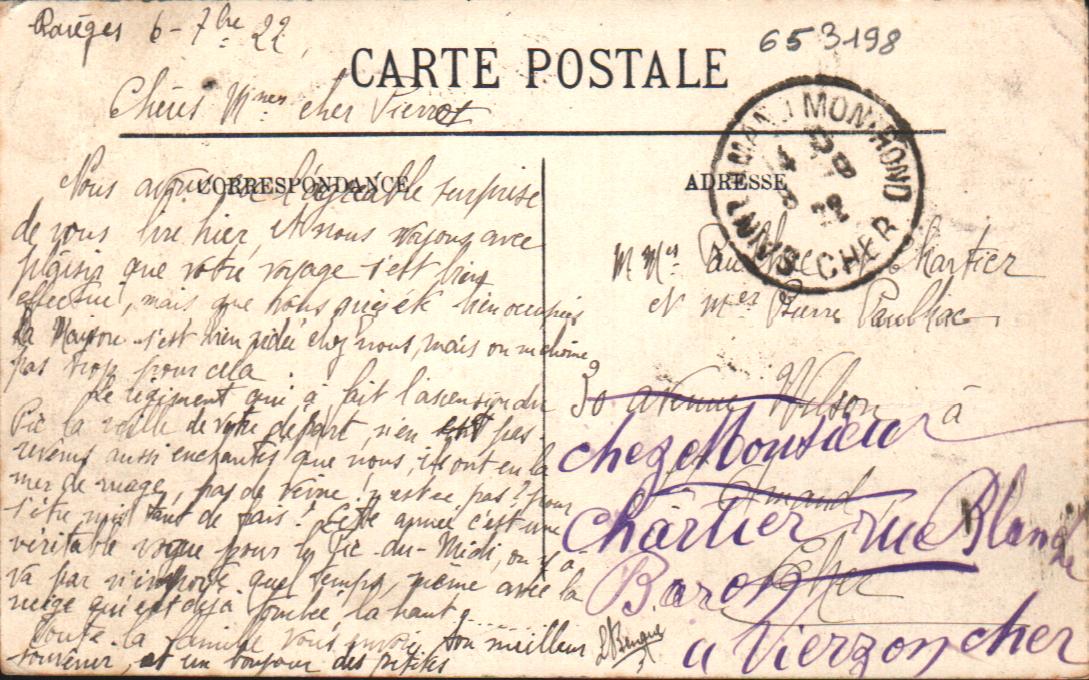 Barèges 6-7bre 22
653198
CARTE POSTALE
Chères Mmes cher Pierrot
CORRESPONDANCE
Nous avons l'agréable surprise
de vous lire hier, et nous voyons avec
plaisir que votre voyage s'est bien
effectué, mais que
La Maison s'est bien vidée chez nous, mais on ne chôme
pas trop pour cela.
Le régiment qui a fait l'ascension du
Pic la veille de votre départ, n'en est pas
revenus aussi enchantés que nous, ils ont eu la
mer de nuage, pas de veine! n'est ce pas? pour
s'être mis tant de frais! Cette année c'est une
véritable vogue pour le Pic-du-Midi, on y a
va par n'importe quel temps, même avec la
neige qui est déjà tombée là haut.
Toute la famille vous envoie son meilleur
souvenir, et un bonjour des petites
ADRESSE
SAINT AMAND MONTROND
CHER
Mmes Chartier
et Mer Pierre Paulhac
30 avenue Wilson à
St Amand
Cher
chez Monsieur
Chartier rue Blanche
Baron
a Vierzon cher